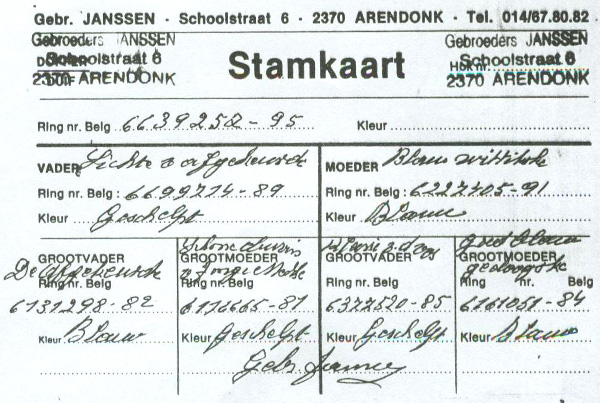 Gebr. JANSSEN - Schoolstraat 6 - 2370 ARENDONK - Tel. 014/67.80.82
Gebroeders JANSSEN
Schoolstraat 6
2370 ARENDONK
Stamkaart
Gebroeders JANSSEN
Schoolstraat 6
2370 ARENDONK
Ring nr. Belg 6639252-95 Kleur
VADER Lichte v afgekeurde
MOEDER Blauw wittikske
Ring nr. Belg : 6699714-89
Ring nr. Belg : 6227405-91
Kleur Geschelpt
Kleur Blauw
GROOTVADER De Afgekeurde
Ring nr. Belg
6131298-82
Kleur Blauw
GROOTMOEDER
Ring nr. Belg
6116665-81
Kleur Geschelpt
GROOTVADER
Ring nr. Belg
6377520-85
Kleur Geschelpt
GROOTMOEDER
Ring nr. Belg
6161051-84
Kleur Blauw
Gebr Janssen